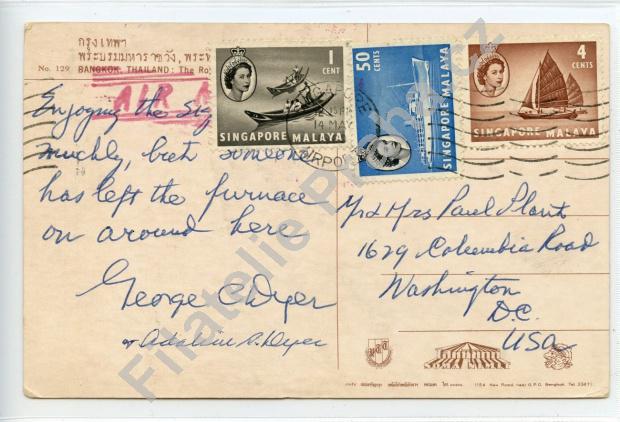 กรุงเทพฯ
พระบรมมหาราชวัง,
No. 129 BANGKOK, THAILAND: The Ro
AIR
Enjoying the
muchly, but someone
has left the furnace
on around here
George C Dyer
& Adaline R. Dyer
1 CENT
SINGAPORE MALAYA
50 CENTS
SINGAPORE MALAYA
4 CENTS
SINGAPORE MALAYA
14 MAY
AIRPORT
Mr & Mrs Paul Plant
1629 Columbia Road
Washington
D.C.
USA
SOMA NIMIT
(184 New Road, near G.P.O. Bangkok. Tel. 3341)
Filatelie Pha cz